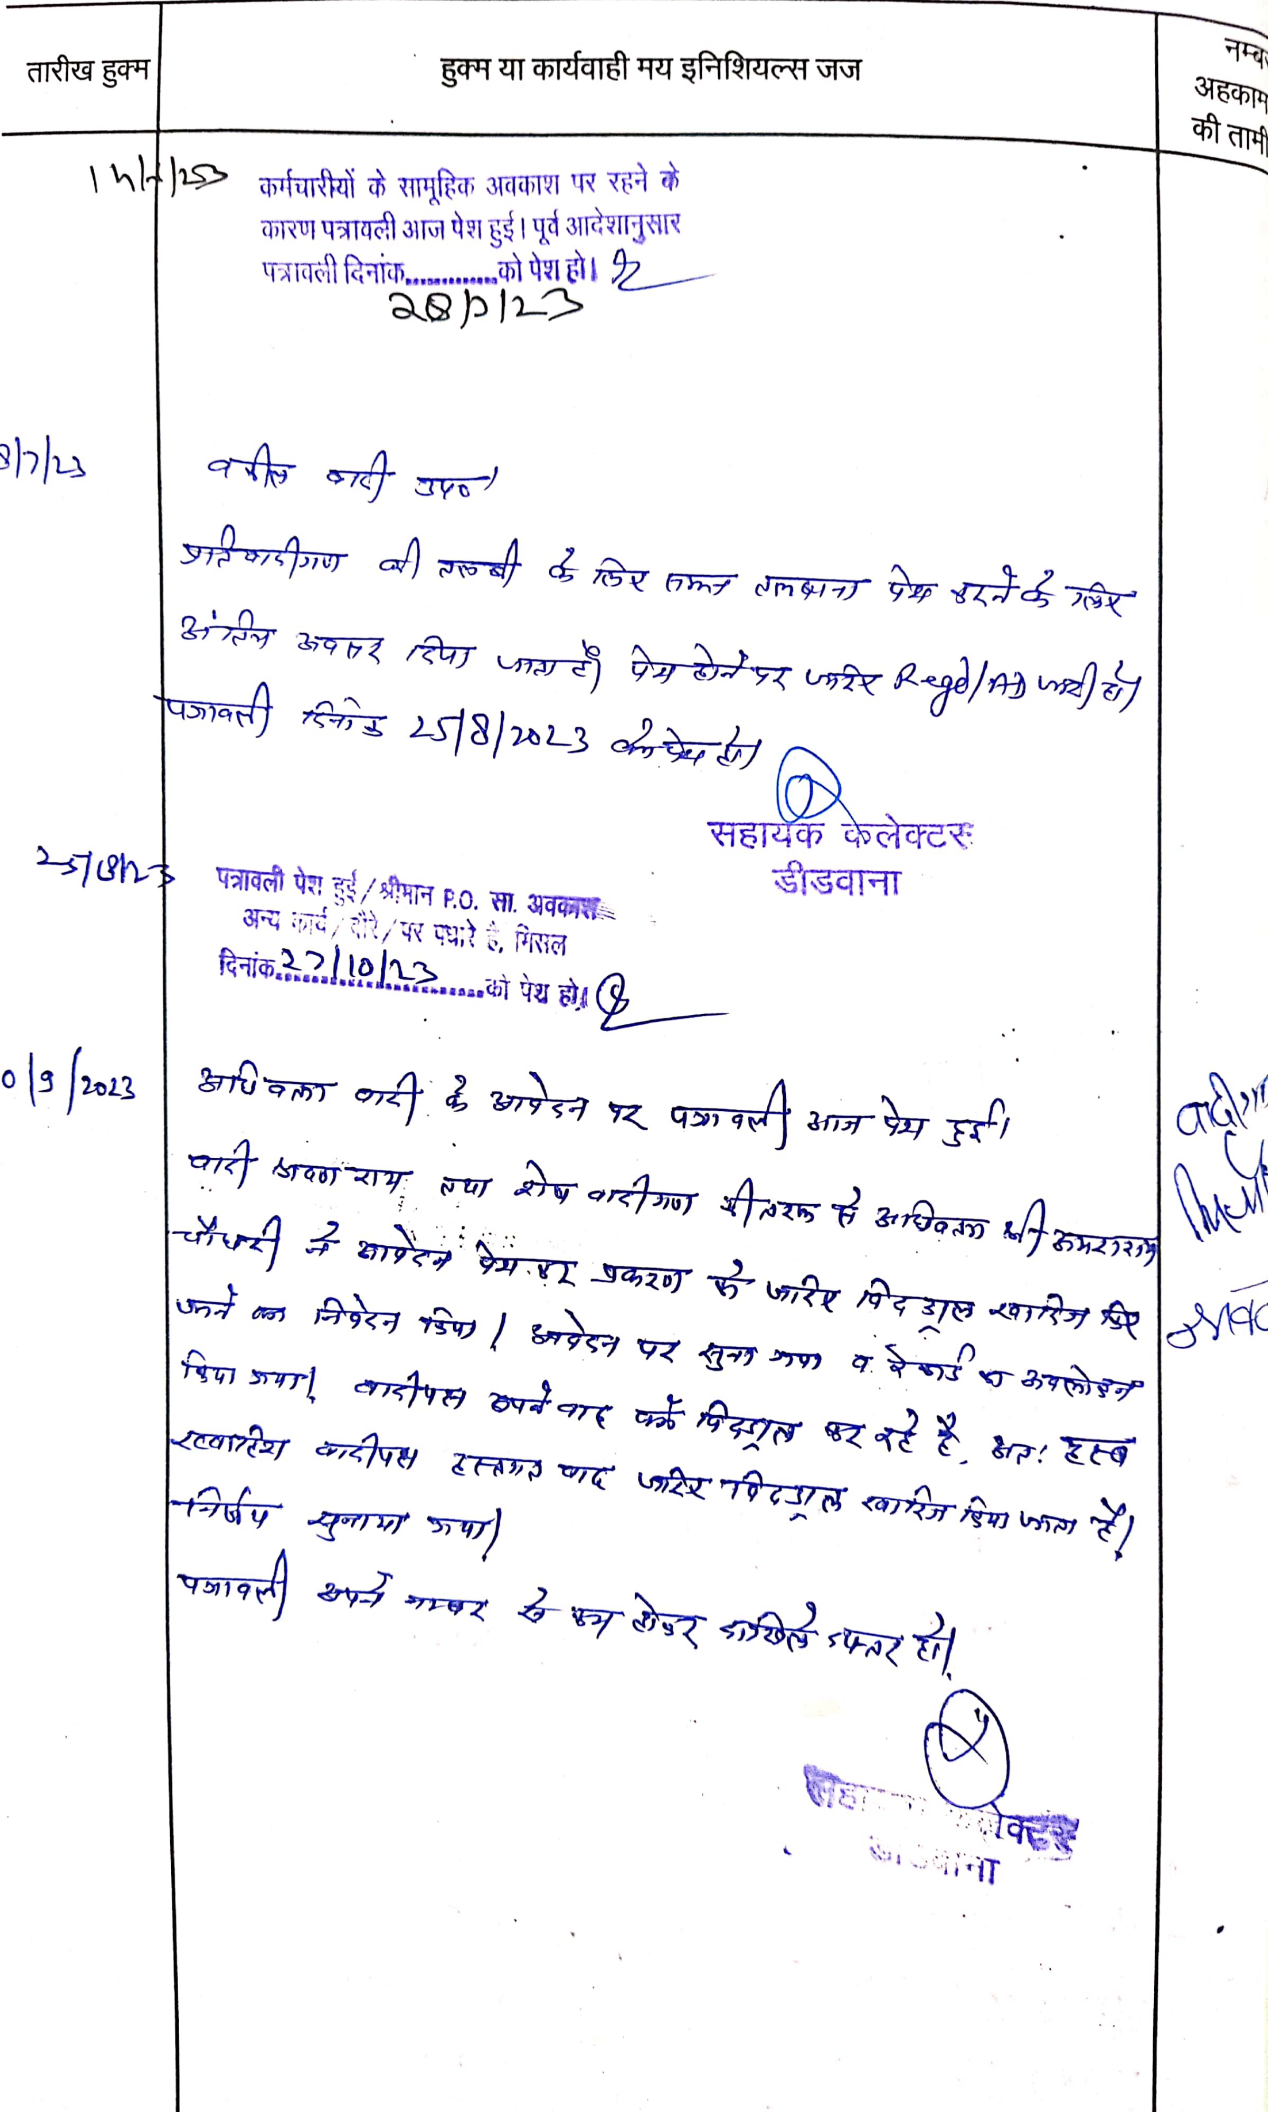 तारीख हुक्म
हुक्म या कार्यवाही मय इनिशियल्स जज
नम्बर
अहकाम
की तामी
कर्मचारीयों के सामूहिक अवकाश पर रहने के
कारण पत्रावली आज पेश हुई। पूर्व आदेशानुसार
पत्रावली दिनांक..............को पेश हो।
28/7/23
8/7/23
वकील वादी उप०
प्रतिवादीगण की तलबी के लिए समन तलबाना पेश करने के लिए
अंतिम अवसर दिया जाता है। पेश होने पर जरिए Regd/AD जारी हो।
पत्रावली दिनांक 25/8/2023 को पेश हो।
सहायक कलेक्टर
डीडवाना
25/8/23
पत्रावली पेश हुई/श्रीमान P.O. सा. अवकाश
अन्य कार्य/दौरे/पर पधारे है, मिसल
दिनांक 27/10/23 को पेश हो।
0/9/2023
अधिवक्ता वादी के आवेदन पर पत्रावली आज पेश हुई।
वादी श्रवण राम तथा शेष वादीगण की तरफ से अधिवक्ता श्री अमराराम
चौधरी ने आवेदन पेश कर प्रकरण को जरिए विदड्राल खारिज किए
जाने का निवेदन किया। आवेदन पर सुना गया व रेकार्ड का अवलोकन
किया गया। वादीपक्ष अपने वाद को विदड्राल कर रहे है, अतः हस्ब
ख्वाहिश वादीपक्ष हस्तगत वाद जरिए विदड्राल खारिज किया जाता है।
निर्णय सुनाया गया।
पत्रावली अपने नम्बर से कम होकर दाखिले दफ्तर हो।
वादीगण
सहा
लेक्टर
वाना